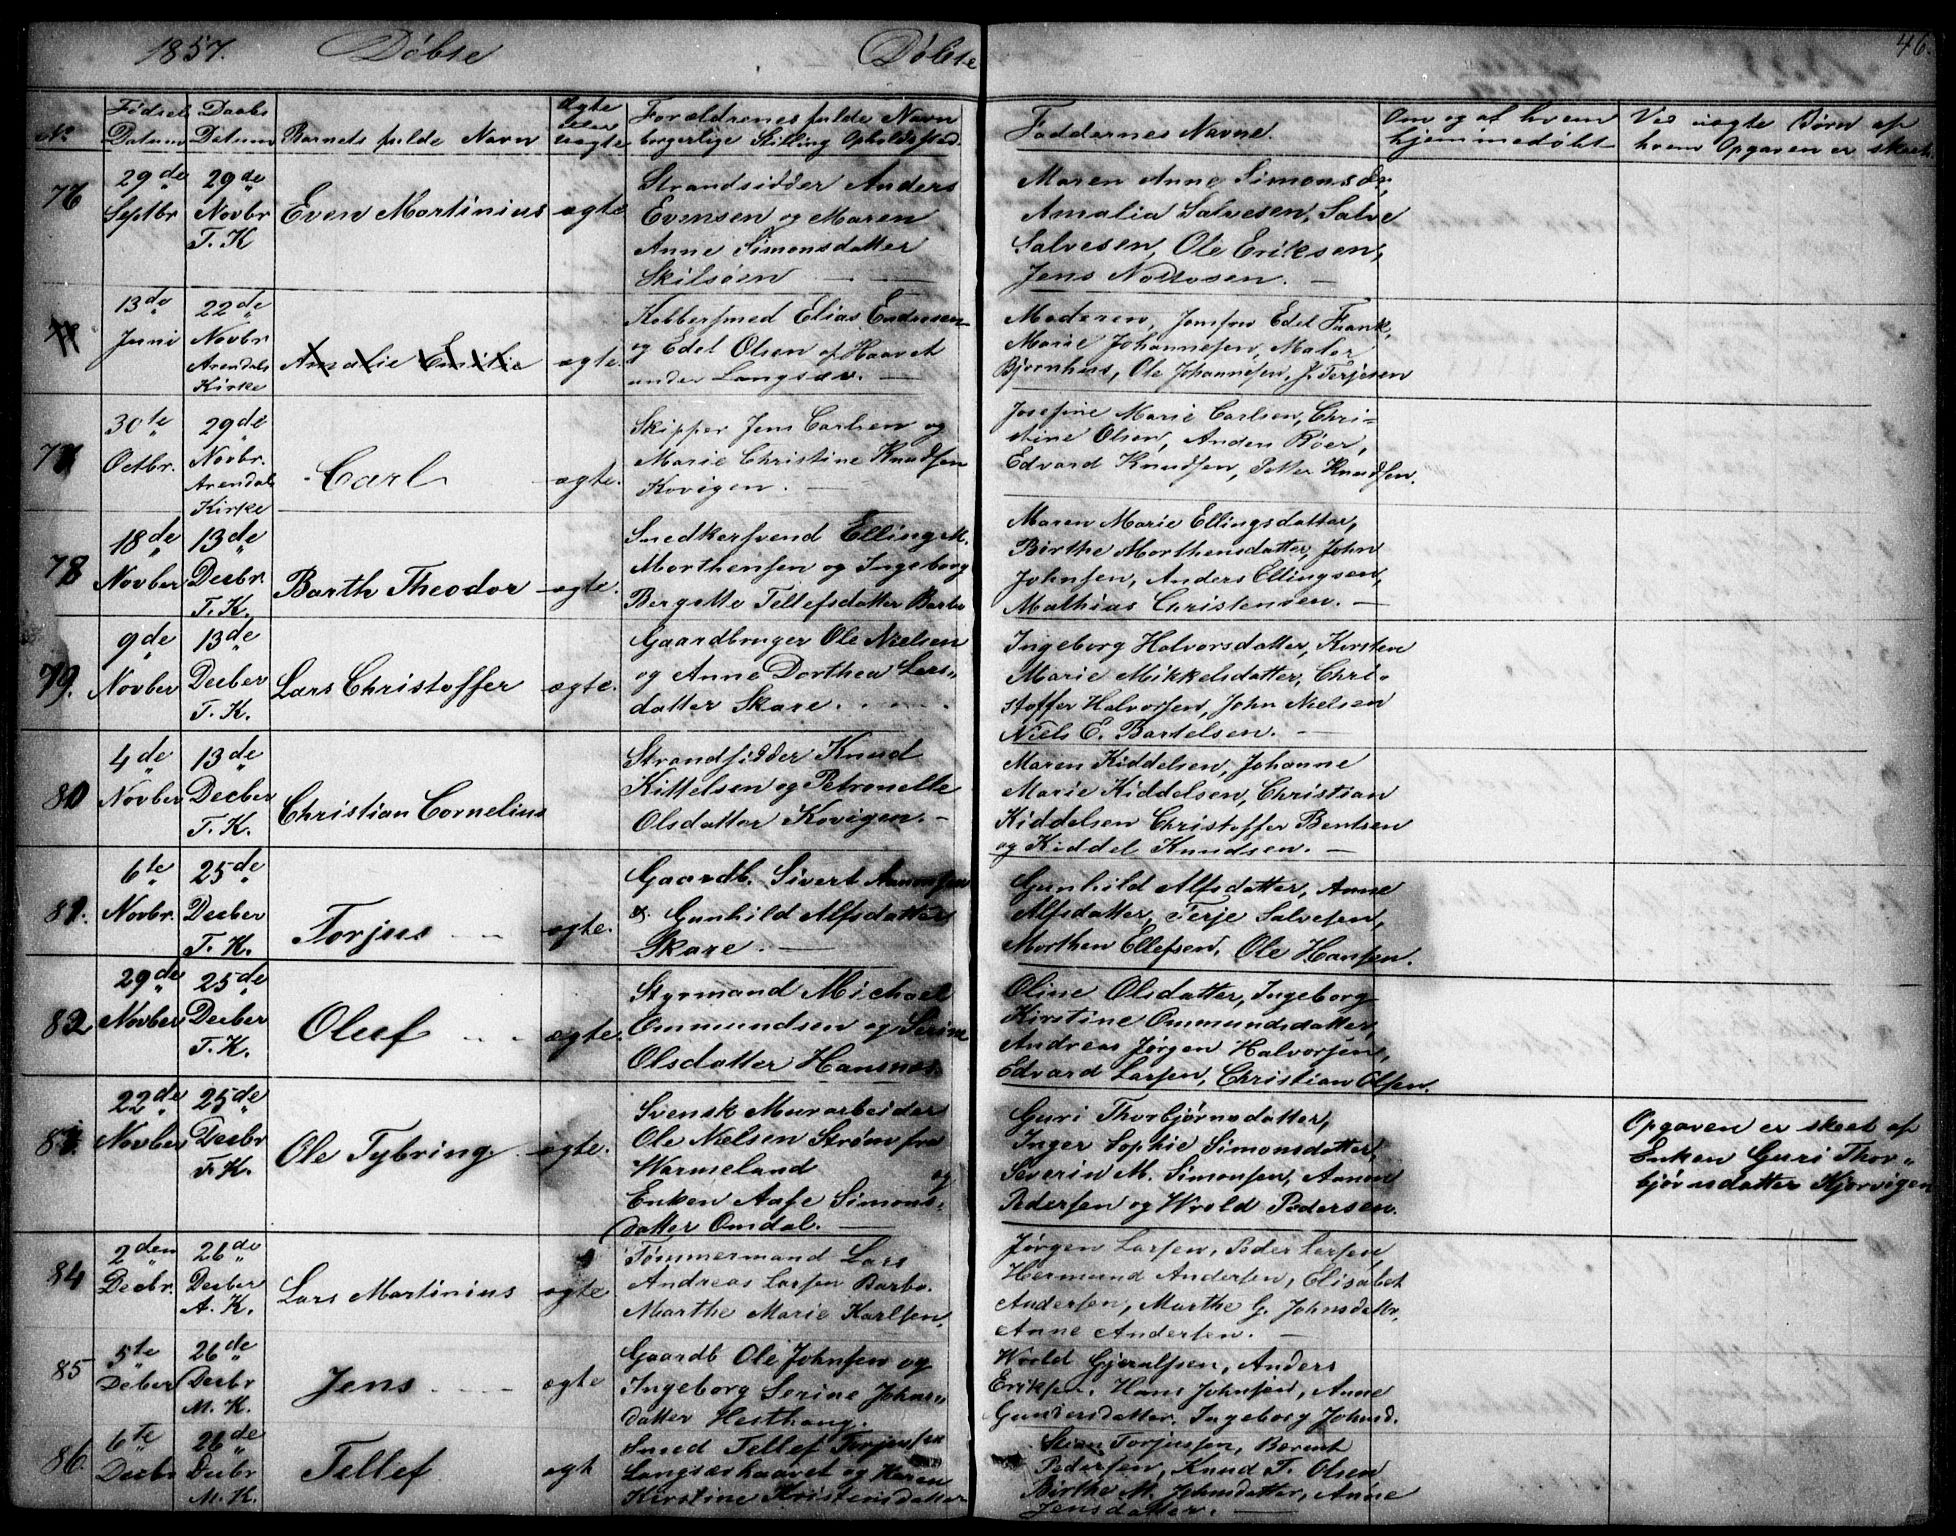 1857. Døbte Døbte 46.
No
Fødsels Datum
Daabs Datum
Barnets fulde Navn
ægte eller uægte
Forældrenes fulde Navn
borgerlige Stilling Opholdssted.
Faddernes Navne.
Om og af hvem
hjemmedøbt
Ved uægte Børn af
hvem Opgaven er skeet
76 29de Septbr 29de Novbr T. K Even Martinius ægte
Strandsidder Anders
Evensen og Maren
Anne Simonsdatter
Skilsøen
Maren Anne Simonsdr,
Amalia Salvesen, Salve
Salvesen, Ole Eriksen,
Jens Nottosen.
13de Juni 22de Novbr Arendals Kirke Amalie Emilie ægte.
Kobbersmed Elias Endresen
og Edel Olsen af Haavet
under Langsæe.
Moderen, Jomfru Edel Frank,
Marie Johannesen, Maler
Bjørnhuus, Ole Johannesen, J. Terjesen
77 30te Octbr. 29de Novbr. Arendals Kirke Carl ægte.
Skipper Jens Carlsen og
Marie Christine Knudsen
Kovigen.
Josefine Marie Carlsen, Chri-
stine Olsen, Anders Röer,
Edvard Knudsen, Petter Knudsen.
78 18de Novber 13de Decbr. T. K. Barth Theodor ægte.
Snedkersvend Elling M.
Morthensen og Ingeborg
Bergitte Tellefsdatter Barbo
Maren Marie Ellingsdatter,
Birthe Morthensdatter, John
Johnsen, Anders Ellingsen,
Mathias Christensen.
79. 9de Novber 13de Decber T. K. Lars Christoffer ægte.
Gaardbruger Ole Nielsen
og Anne Dorthea Lars-
datter Skare.
Ingeborg Halvorsdatter, Kirsten
Marie Mikkelsdatter, Chri-
stoffer Halvorsen, John Nielsen
Niels E. Bartelsen.
80 4de Novber 13de Decber T. K. Christian Cornelius
Strandsidder Knud
Kittelsen og Petronelle
Olsdatter Kovigen.
Maren Kiddelsen, Johanne
Marie Kiddelsen, Christian
Kiddelsen Christoffer Bentsen
og Kiddel Knudsen.
81. 6te Novbr. 25de Decber T. K. Torjus ægte.
Gaardb. Sivert Aanonsen
& Gunhild Alfsdatter
Skare.
Gunhild Alfsdatter, Anne
Alfsdatter, Terje Salvesen,
Morthen Ellefsen, Ole Hansen.
82 29de Novber 25de Decber T. K. Oluf ægte.
Styrmand Michael
Ommundsen og Serine
Olsdatter Hansnæs.
Oline Olsdatter, Ingeborg
Kirstine Ommundsdatter,
Andreas Jørgen Halvorsen,
Edvard Larsen, Christian Olsen.
83. 22de Novber 25de Decbr T. K. Ole Tybring ægte.
Svensk Murarbeider
Ole Nielsen Strøm fra
Warmeland og
Enken Aase Simons-
datter Omdal.
Guri Thorbjørnsdatter,
Inger Sophie Simonsdatter,
Severin M. Simonsen, Aanon
Pedersen og Wrold Pedersen.
Opgaven er skeet af
Enken Guri Thor-
bjørnsdatter Kjorvigen
84 2den Decbr. 26de Decber A. K. Lars Martinius ægte
Tømmermand Lars
Andreas Larsen Barbo.
Marthe Marie Karlsen.
Jørgen Larsen, Peder Larsen
Hermund Andersen, Elisabet
Andersen, Marthe G. Johnsdatter,
Anne Andersen.
85 5te Deber 26de Decbr M. K. Jens ægte
Gaardb Ole Johnsen og
Ingeborg Serine Johans-
datter Hesthaug.
Wrold Gjerulfsen, Anders
Eriksen, Hans Johnsen, Anne
Gundersdatter. Ingeborg Johnsd.
86. 6te Decbr 26de Decbr M. K. Tellef ægt
Smed Tellef Torjussen
Langsæehaavet og Karen
Kirstine Kristensdatter
Stian Torjussen, Berent
Pedersen, Knud T. Olsen
Birthe M. Johnsdatter, Anne
Jensdatter.